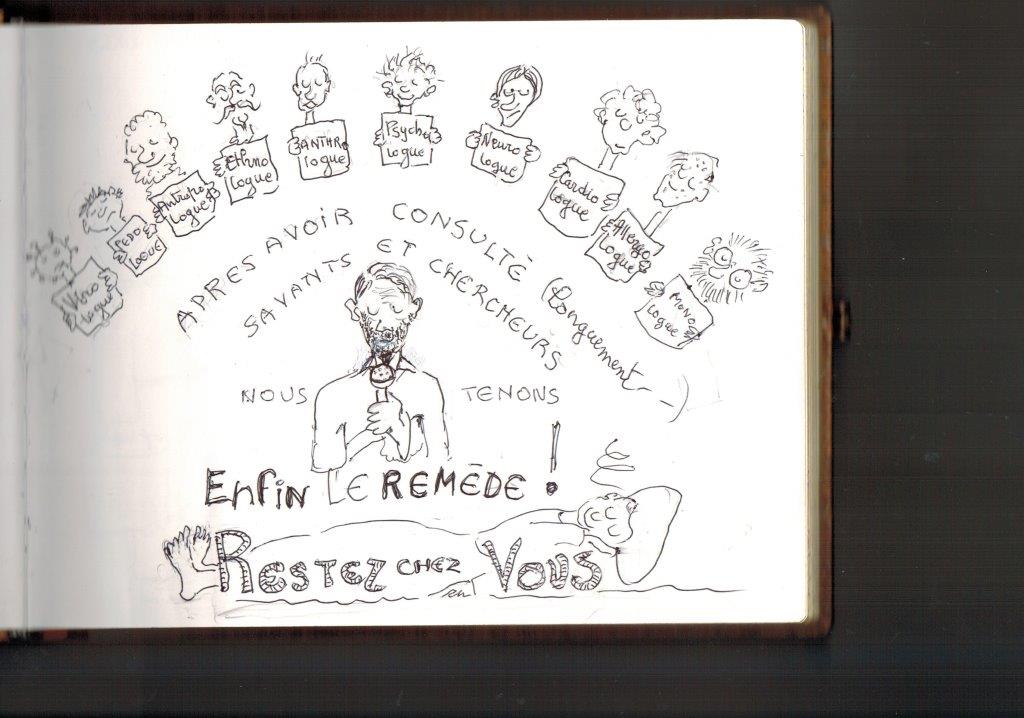 Viro
logue
PEDO
LOGUE
Antropo
logue
Ethno
logue
ANTHRO
logue
Psycho
logue
Neuro
logue
Cardio
logue
Allergo
logue
MONO
logue
APRES AVOIR CONSULTÉ (Longuement)
SAVANTS ET CHERCHEURS
NOUS TENONS
Enfin LE REMÈDE !
RESTEZ CHEZ VOUS